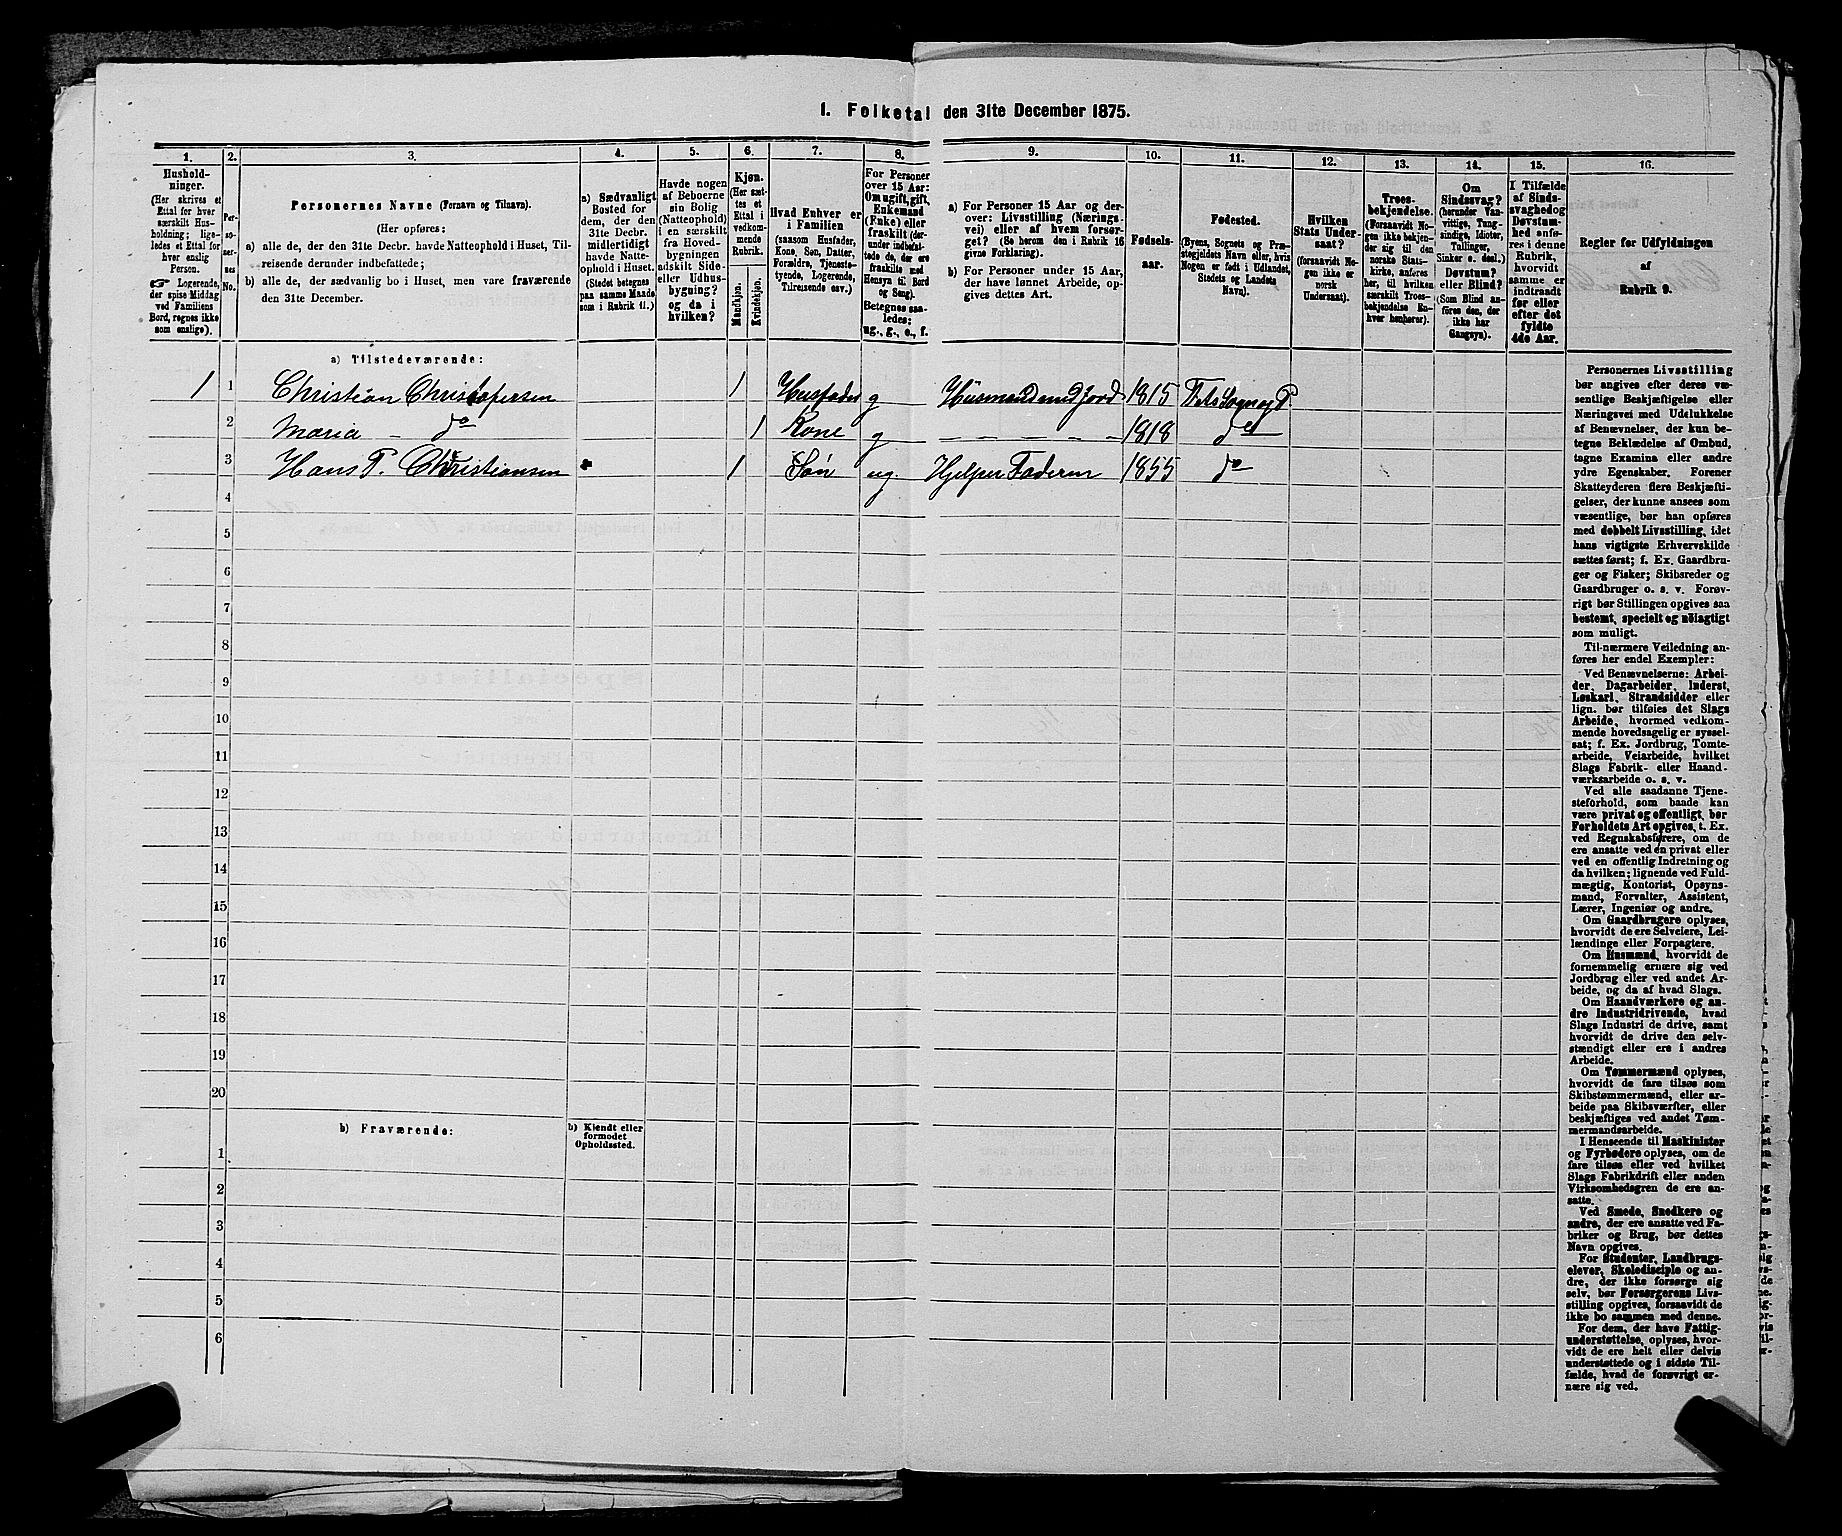 1. Folketal den 31te December 1875.
1. 2. 3. 4. 5. 6. 7. 8. 9. 10. 11. 12. 13. 14. 15. 16.
Hushold-
ninger.
(Her skrives et
Ettal for hver
særskilt Hus-
holdning; lige-
ledes et Ettal for
hver enslig
Person.
☛ Logerende,
der spise Middag
ved Familiens
Bord, regnes ikke
som enslige).
Per-
so-
ner-
nes
No.
Personernes Navne (Fornavn og Tilnavn).
(Her opføres:
a) alle de, der den 31te Decbr. havde Natteophold i Huset, Til-
reisende derunder indbefattede;
b) alle de, der sædvanlig bo i Huset, men vare fraværende
den 31te December.
a) Sædvanligt
Bosted for
dem, der den
31te Decbr.
midlertidigt
havde Natte-
ophold i Huset.
(Stedet betegnes
paa samme Maade
som i Rubrik 11.)
Havde nogen
af Beboerne
sin Bolig
(Natteophold)
i en særskilt
fra Hoved-
bygningen
adskilt Side-
eller Udhus-
bygning?
og da i
hvilken?
Kjøn.
(Her sæt-
tes et
Ettal i
vedkom-
mende
Rubrik.
Mandkjøn.
Kvindekjøn.
Hvad Enhver er
i Familien
(saasom Husfader,
Kone, Søn, Datter,
Forældre, Tjeneste-
tyende, Logerende,
Tilreisende osv.)
For Personer
over 15 Aar:
Om ugift, gift,
Enkemand
(Enke) eller
fraskilt (der-
under indbefat-
tede de, der ere
fraskilte med
Hensyn til Bord
og Seng).
Betegnes saa-
ledes;
ug., g., e., f.
a) For Personer 15 Aar og der-
over: Livsstilling (Nærings-
vei) eller af hvem forsør-
get? (Se herom den i Rubrik 16
givne Forklaring).
b) For Personer under 15 Aar,
der have lønnet Arbeide, op-
gives dettes Art.
Fødsels-
aar.
Fødested.
(Byens, Sognets og Præ-
stegjeldets Navn eller, hvis
Nogen er født i Udlandet,
Stedets og Landets
Navn).
Hvilken
Stats Under-
saat?
(forsaavidt No-
gen ikke er
norsk
Undersaat).
Troes-
bekjendelse.
(Forsaavidt No-
gen ikke bekjen-
der sig til den
norske Stats-
kirke, anføres
her, til hvilken
særskilt Troes-
bekjendelse En-
hver henhører).
Om
Sindssvag?
(herunder Van-
vittige, Tung-
sindige, Idioter,
Tullinger,
Sinker o. desl.)
Døvstum?
eller Blind?
(Som Blind an-
føres den, der
ikke har
Gangsyn).
I Tilfælde
af Sinds-
svaghed og
Døvstum-
hed anfø-
res i denne
Rubrik,
hvorvidt
samme er
indtraadt
før eller
efter det
fyldte
4de Aar.
Regler for Udfyldningen
af
Rubrik 9.
a) Tilstedeværende:
1 1 Christian Christofersen 1 Husfader g Husmand med jord 1815 Fets Sogn og P
2 Maria - do 1 Kone g - - - - - 1818 do
3 Hans P. Christiansen 1 Søn ug. Hjelper Faderen 1855 do
4
5
6
7
8
9
10
11
12
13
14
15
16
17
18
19
20
b) Fraværende: b) Kjendt eller
formodet
Opholdssted.
1
2
3
4
5
6
Personernes Livsstilling
bør angives efter deres væ-
sentlige Beskjæftigelse eller
Næringsvei med Udelukkelse
af Benævnelser, der kun be-
tegne Beklædelse af Ombud,
tagne Examina eller andre
ydre Egenskaber. Forener
Skatteyderen flere Beskjæfti-
gelser, der kunne ansees som
væsentlige, bør han opføres
med dobbelt Livsstilling, idet
hans vigtigste Erhvervskilde
sættes først; f. Ex. Gaardbru-
ger og Fisker; Skibsreder og
Gaardbruger o. s. v. Forøv-
rigt bør Stillingen opgives saa
bestemt, specielt og nøiagtigt
som muligt.
Til nærmere Veiledning an-
føres her endel Exempler:
Ved Benævnelserne: Arbei-
der, Dagarbeider, Inderst,
Løskarl, Strandsidder eller
lign. bør tilføies det Slags
Arbeide, hvormed vedkom-
mende hovedsagelig er syssel-
sat; f. Ex. Jordbrug, Tomte-
arbeide, Veiarbeide, hvilket
Slags Fabrik- eller Haand-
værksarbeide o. s. v.
Ved alle saadanne Tjene-
steforhold, som baade kan
være privat og offentligt, bør
Forholdets Art opgives, t. Ex.
ved Regnskabsførere, om de
ere ansatte ved en privat eller
ved en offentlig Indretning og
da hvilken; lignende ved Fuld-
mægtig, Kontorist, Opsyns-
mand, Forvalter, Assistent,
Lærer, Ingeniør og andre.
Om Gaardbrugere oplyses,
hvorvidt de ere Selveiere, Lei-
lændinge eller Forpagtere.
Om Husmænd, hvorvidt de
fornemmelig ernære sig ved
Jordbrug eller ved andet Ar-
beide, og da af hvad Slags.
Om Haandværkere og an-
dre Industridrivende, hvad
Slags Industri de drive, samt
hvorvidt de drive den selv-
stændigt eller ere i andres
Arbeide.
Om Tømmermænd oplyses,
hvorvidt de fare tilsøs som
Skibstømmermænd, eller ar-
beide paa Skibsværfter, eller
beskjæftiges ved andet Tøm-
mermandsarbeide.
I Henseende til Maskinister
og Fyrbødere oplyses, om de
fare tilsøs eller ved hvilket
Slags Fabrikdrift eller anden
Virksomhedsgren de ere an-
satte.
Ved Smede, Snedkere og
andre, der ere ansatte ved Fa-
briker og Brug, bør dettes
Navn opgives.
For Studenter, Landbrugs-
elever, Skoledisciple og an-
dre, der ikke forsørge sig
selv, bør Forsørgerens Livs-
stilling opgives, forsaavidt de
ikke bo sammen med denne.
For dem, der have Fattig-
understøttelse, oplyses, hvor-
vidt de ere helt eller delvis
understøttede og i sidste Til-
fælde, hvad de forøvrigt er-
nære sig ved.